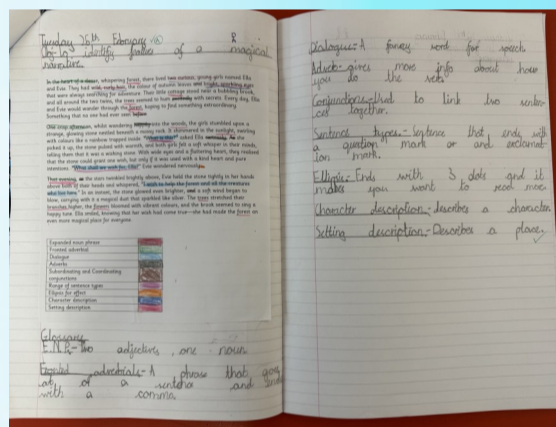 Tuesday 26th February
Obj: to identify features of a magical
narrative
In the heart of a dense, whispering forest, there lived two curious, young girls named Ella
and Evie. They had wild, curly hair, the colour of autumn leaves and bright, sparkling eyes
that were always searching for adventure. Their little cottage stood near a bubbling brook,
and all around the two twins, the trees seemed to hum with secrets. Every day, Ella
and Evie would wander through the forest, hoping to find something extraordinary.
Something that no one had ever seen before.
One crisp afternoon, whilst wandering into the woods, the girls stumbled upon a
strange, glowing stone nestled beneath a mossy rock. It shimmered in the sunlight, swirling
with colours like a rainbow trapped inside. "What is this?" asked Ella. As she
picked it up, the stone pulsed with warmth, and both girls felt a soft whisper in their minds,
telling them that it was a wishing stone. With wide eyes and a fluttering heart, they realised
that the stone could grant one wish, but only if it was used with a kind heart and pure
intentions. "What shall we wish for, Ella?" Evie wondered nervously.
That evening, as the stars twinkled brightly above, Evie held the stone tightly in her hands
above both of their heads and whispered, "I wish to help the forest and all the creatures
who live here." In an instant, the stone glowed even brighter, and a soft wind began to
blow, carrying with it a magical dust that sparkled like silver. The trees stretched their
branches higher, the flowers bloomed with vibrant colours, and the brook seemed to sing a
happy tune. Ella smiled, knowing that her wish had come true—she had made the forest an
even more magical place for everyone.
Expanded noun phrase
Fronted adverbial
Dialogue
Adverbs
Subordinating and Coordinating
conjunctions
Range of sentence types
Ellipsis for effect
Character description
Setting description
Glossary
E.N.P- Two adjectives, one noun
Fronted adverbials- A phrase that goes
of a and ends
with a comma.
Dialogue- A fancy word for speech
Adverb- gives more info about how
you do the
Conjunctions- Used to link two senten-
ces together.
Sentence types- Sentence that ends with
a question mark or and exclamat-
ion mark.
Ellipsis- Ends with 3 dots and it
makes you want to read more.
Character description- describes a character
Setting description- Describes a place.